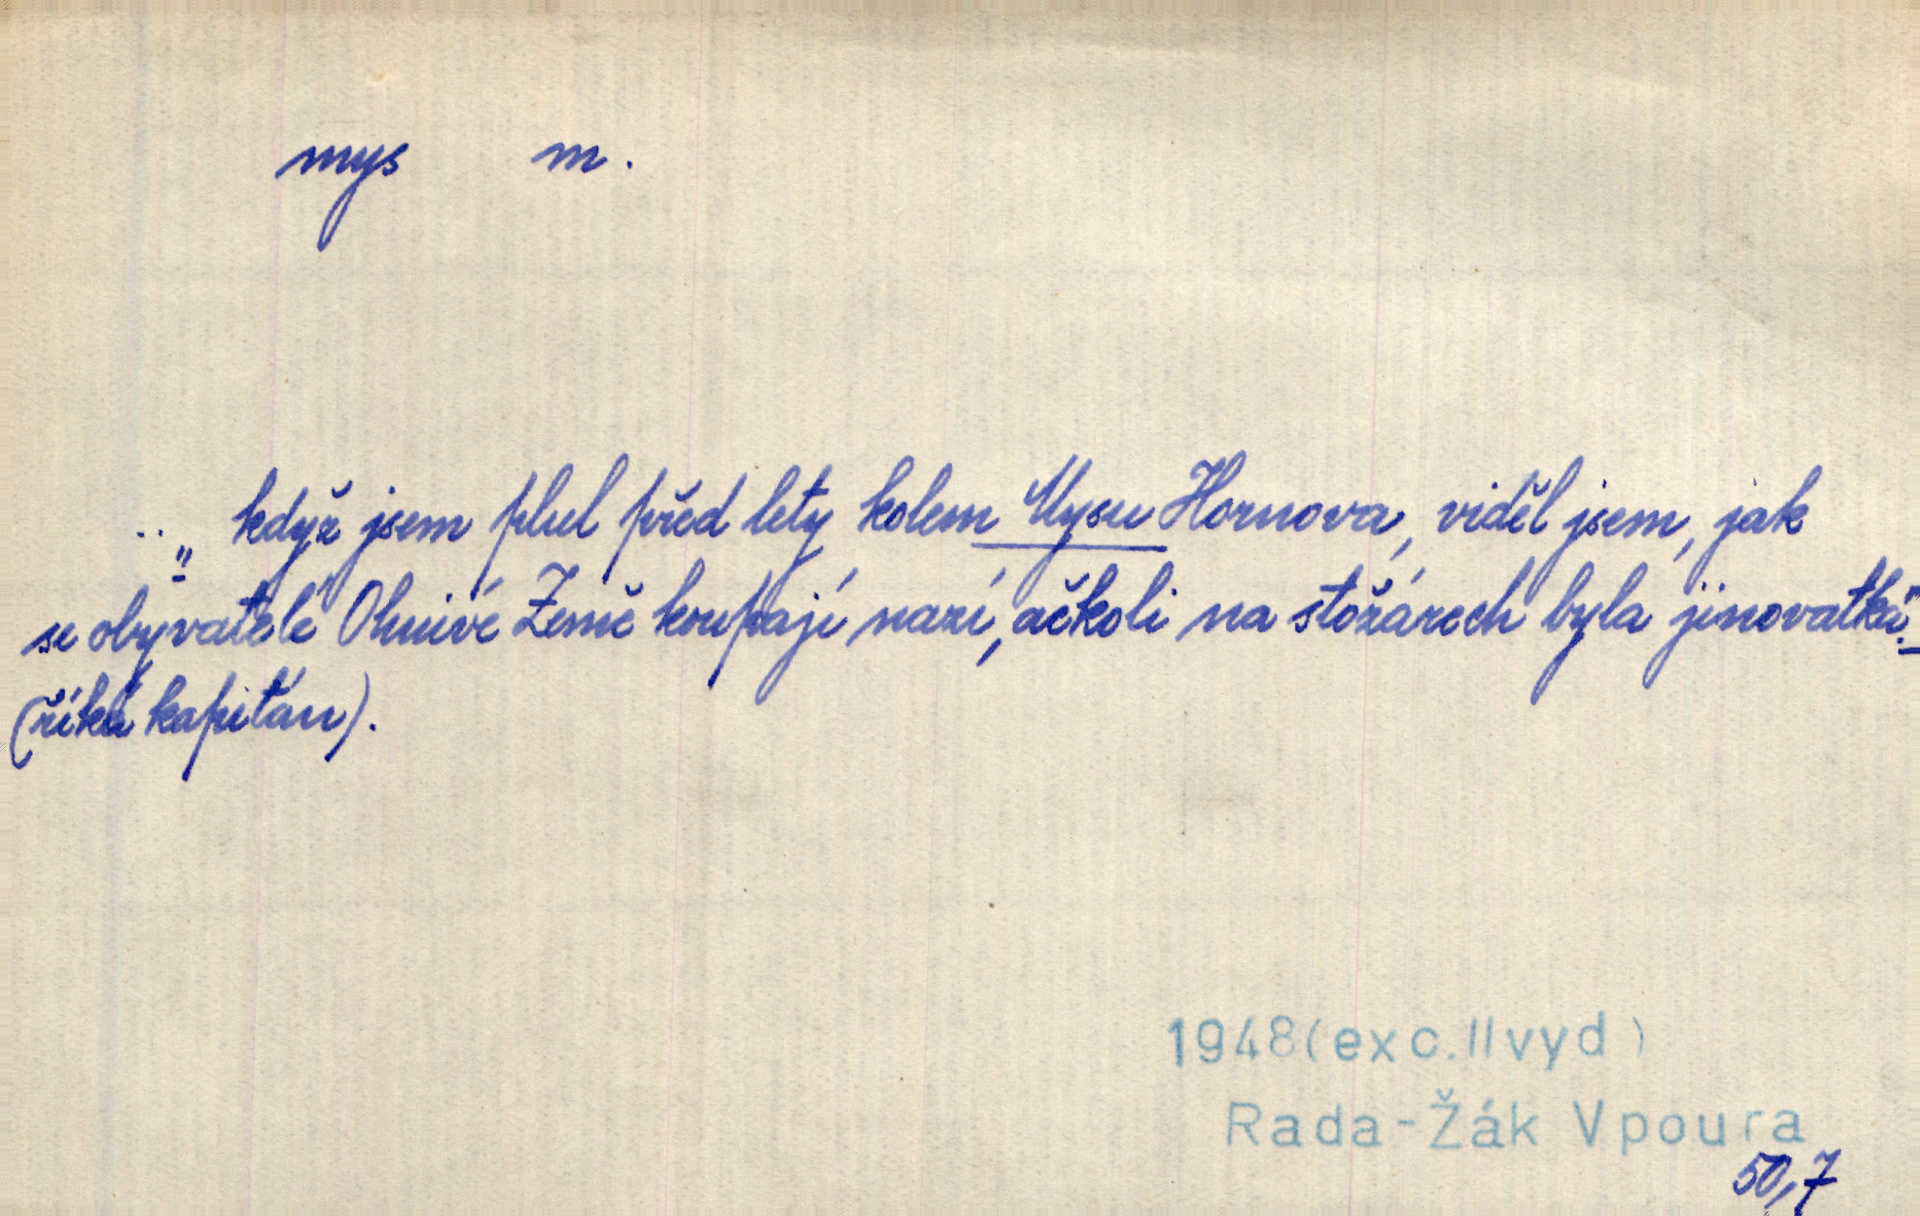 mys m.
.. „ když jsem plul před lety kolem Mysu Hornova, viděl jsem, jak
se obyvatelé Ohnivé Země koupají nazí, ačkoli na stožárech byla jinovatka."
(říká kapitán).
1948(exc.IIvyd)
Rada-Žák Vpoura
50,7